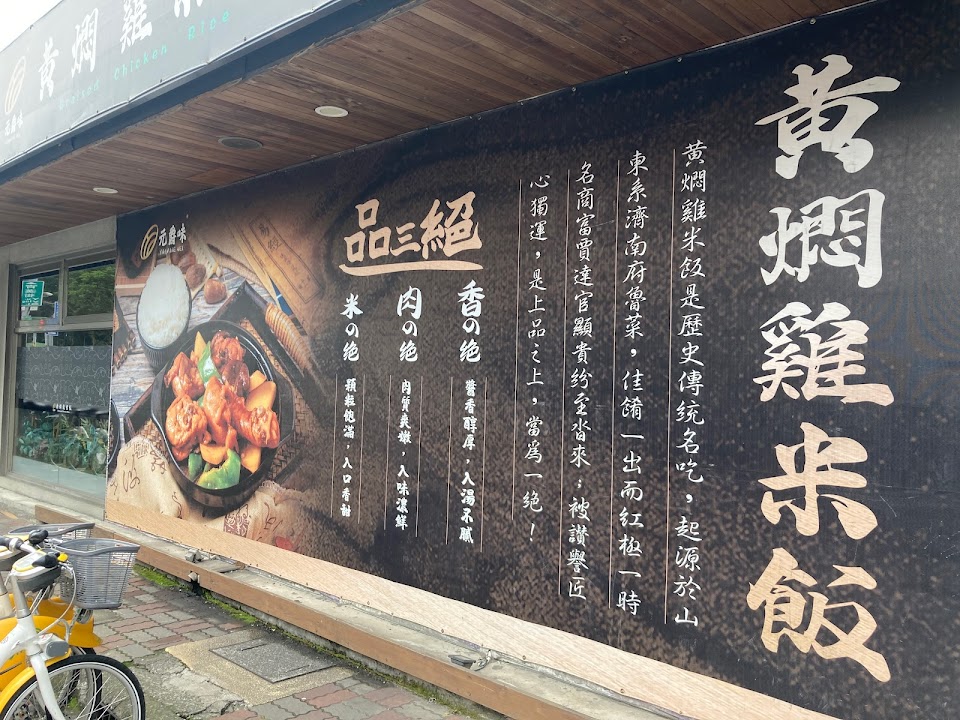 黃燜雞
Braised Chicken Rice
元爵味
黃燜雞米飯
黃燜雞米飯是歷史傳統名吃，起源於山
東系濟南府魯菜，佳餚一出而紅極一時
名商富賈達官顯貴紛至沓來；被讚譽匠
心獨運，是上品之上，當為一絕！
元爵味
品三絕
香の絕
醬香醇厚，入湯不膩
肉の絕
肉質爽嫩，入味濃鮮
米の絕
顆粒飽滿，入口香甜